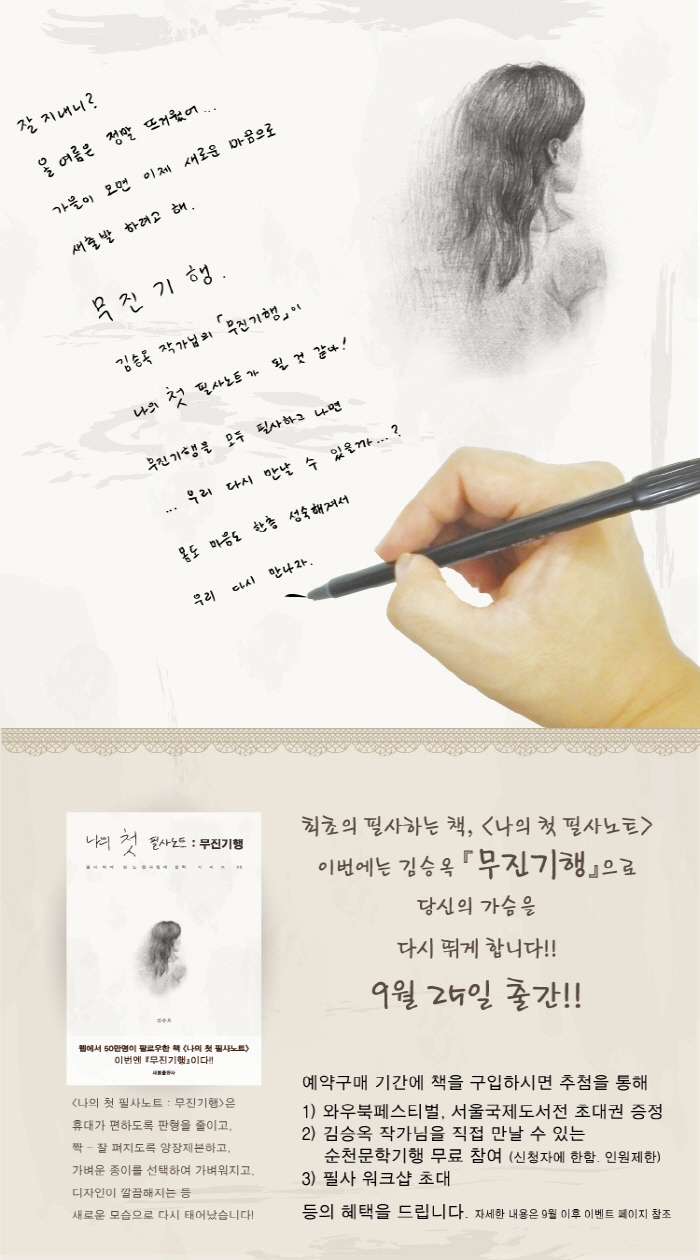 잘 지내니?
올 여름은 정말 뜨거웠어...
가을이 오면 이제 새로운 마음으로
새출발 하려고 해.
무진기행.
김승옥 작가님의 「무진기행」이
나의 첫 필사노트가 될 것 같아!
무진기행을 모두 필사하고 나면
... 우리 다시 만날 수 있을까...?
몸도 마음도 한층 성숙해져서
우리 다시 만나자.
나의 첫 필사노트 : 무진기행
김승옥
웹에서 50만명이 팔로우한 책 <나의 첫 필사노트>
이번엔 『무진기행』이다!!
새봄출판사
<나의 첫 필사노트 : 무진기행>은
휴대가 편하도록 판형을 줄이고,
쫙 - 잘 펴지도록 양장제본하고,
가벼운 종이를 선택하여 가벼워지고,
디자인이 깔끔해지는 등
새로운 모습으로 다시 태어났습니다!
최초의 필사하는 책, <나의 첫 필사노트>
이번에는 김승옥 『무진기행』으로
당신의 가슴을
다시 뛰게 합니다!!
9월 25일 출간!!
예약구매 기간에 책을 구입하시면 추첨을 통해
1) 와우북페스티벌, 서울국제도서전 초대권 증정
2) 김승옥 작가님을 직접 만날 수 있는
순천문학기행 무료 참여 (신청자에 한함. 인원제한)
3) 필사 워크샵 초대
등의 혜택을 드립니다. 자세한 내용은 9월 이후 이벤트 페이지 참조